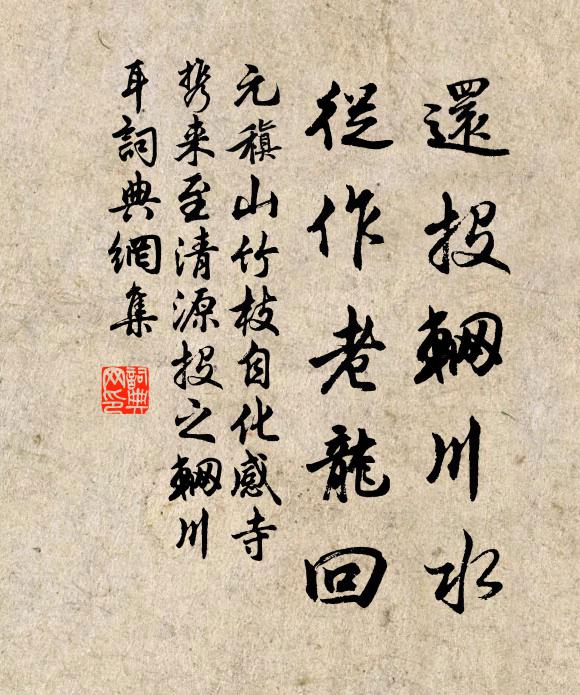 還投輞川水
從作老龍回
元稹山竹枝自化感寺
攜来至清源投之輞川
耳詞典網集
詞典
网印